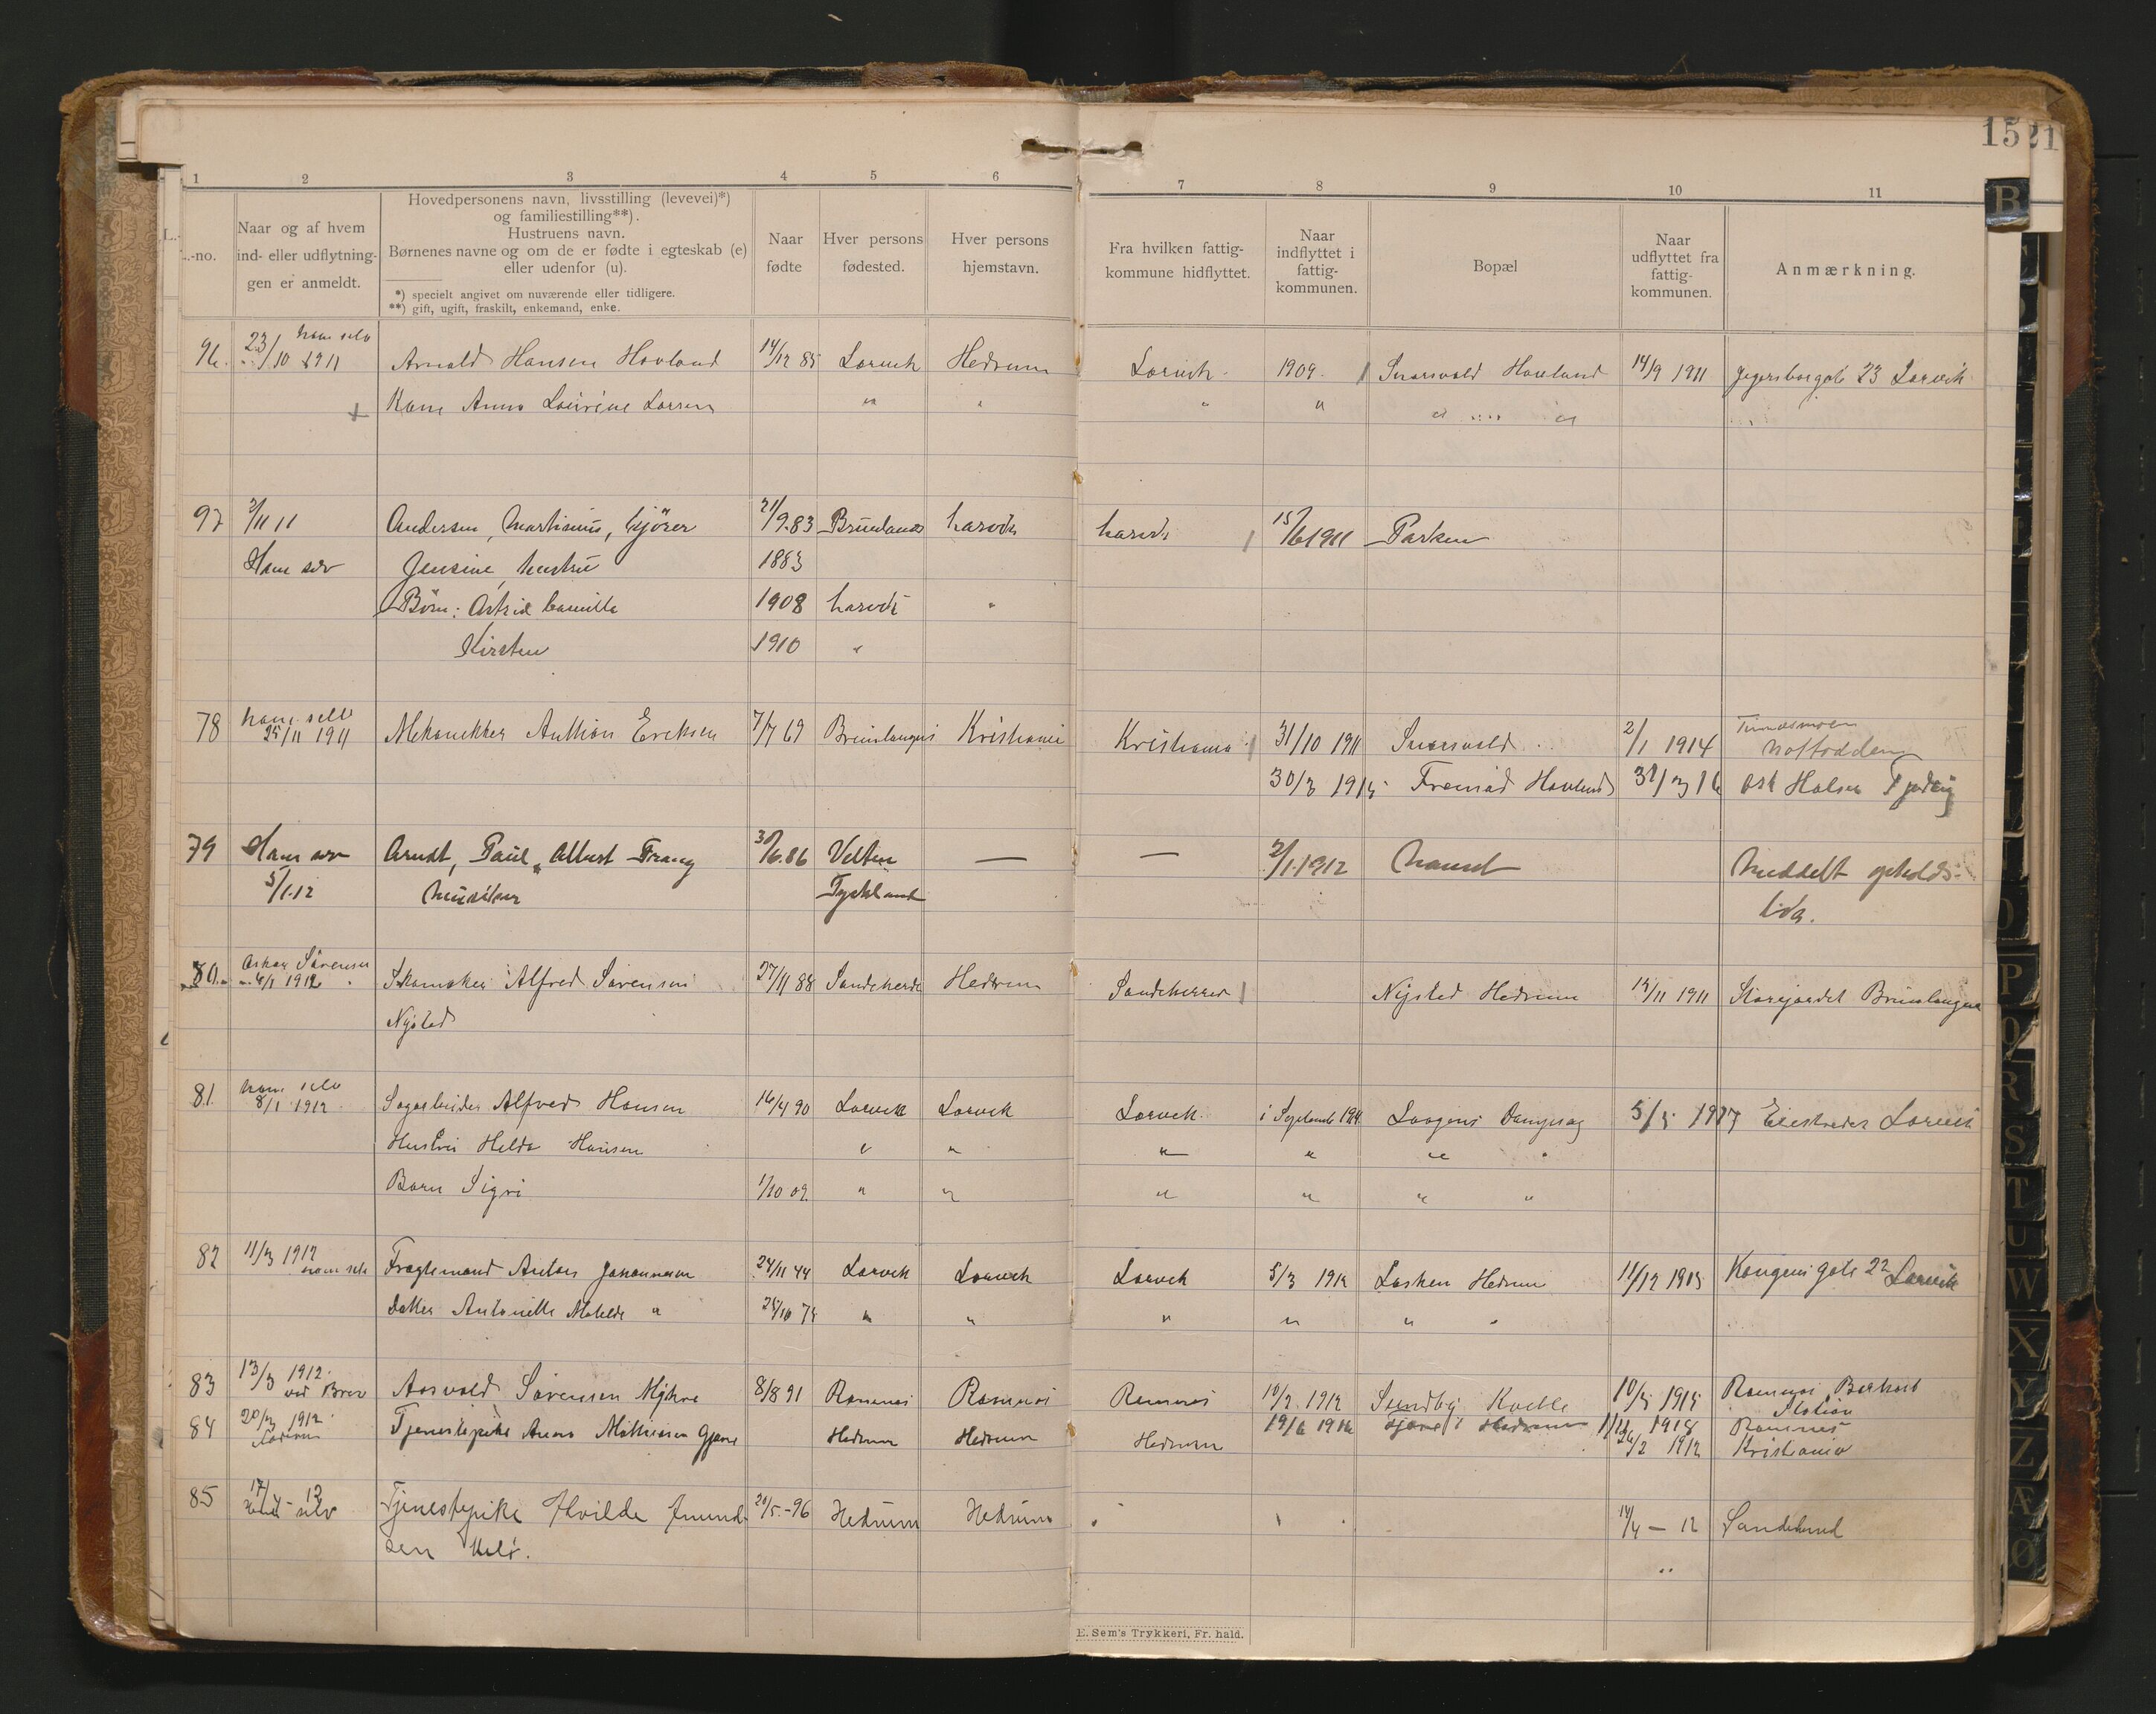 15 21
B
1 2 3 4 5 6 7 8 9 10 11
L.-no.
Naar og af hvem
ind- eller udflytnin-
gen er anmeldt.
Hovedpersonens navn, livsstilling (levevei)*)
og familiestilling**).
Hustruens navn.
Børnenes navne og om de er fødte i egteskab (e)
eller udenfor (u).
*) specielt angivet om nuværende eller tidligere.
**) gift, ugift, fraskilt, enkemand, enke.
Naar
fødte
Hver persons
fødested.
Hver persons
hjemstavn.
Fra hvilken fattig-
kommune hidflyttet.
Naar
indflyttet i
fattig-
kommunen.
Bopæl
Naar
udflyttet fra
fattig-
kommunen.
Anmærkning.
96. 23/10 1911 ham selv Arnold Hansen Hovland 14/12 85 Larvik Hedrum Larvik 1909 Hovland 14/9 1911 23 Larvik
Kone Anna Lovrine Larsen " " " " " "
97 2/11 11 Andersen, Martinius, kjører 21/9.83 Brunlanes Larvik Larvik 15/6 1911 Parken
Ham selv Jensine, hustru 1883
Børn: Astrid Camilla 1908 Larvik "
Kirsten 1910 "
78 ham selv 25/11 1911 Anthion Eriksen 7/7 69 Brunlangnes Kristiania Kristiania 31/10 1911 2/1 1914 Nottodden
30/3 1915 Hovland 31/3 16 Halsen Tjødling
79 Ham selv Arndt, Paul, Albert Franz 30/6.86 Velten — — 2/1.1912 Meddelt opholds-
5/1.12 Musiker Tyskland
80. Oskar Sørensen 4/1 1912 Skomaker Alfred Sørensen 27/11 88 Sandeherred Hedrum Sandeherred Nysted Hedrum 14/11 1911 Brunlangnes
Nysted
81. ham selv 8/1 1912 Sagarbeider Alfred Hansen 16/4 90 Larvik Larvik Larvik i Septemb 1911 Laagens Dampsag 5/5 1917 Larvik
Hustru Helda Hansen " " " " " "
Barn Sigri 1/10 09 " " " " " "
82 11/3 1912 ham selv Fragtemand Anton Johannesen 24/11 44 Larvik Larvik Larvik 5/3 1912 Hedrum 11/12 1915 Kongens gate 22 Larvik
Datter Antonette Matilde " 25/10 75 " " " " " "
83 13/3 1912 ved Brev Aasvald Sørensen Myhre 8/8 91 Ramnes Ramnes Ramnes 10/2 1912 Sundby Kvelle 10/5 1915 Ramnes
Station
84 20/3 1912 Tjenestepike Anna Mathisen Gjone Hedrum Hedrum Hedrum 19/6 1912 Gjone i Hedrum 1918 Ramnes
26/2 1912 Kristiania
85 17/4 - 12 selv Tjenestepike Hvilde Amund- 20/5.-96 Hedrum Hedrum 14/4 — 12 Sandeherred
sen Melø.
E. Sem's Trykkeri, Fr. hald.
O P Q R S T U W X Y Z Æ Ø